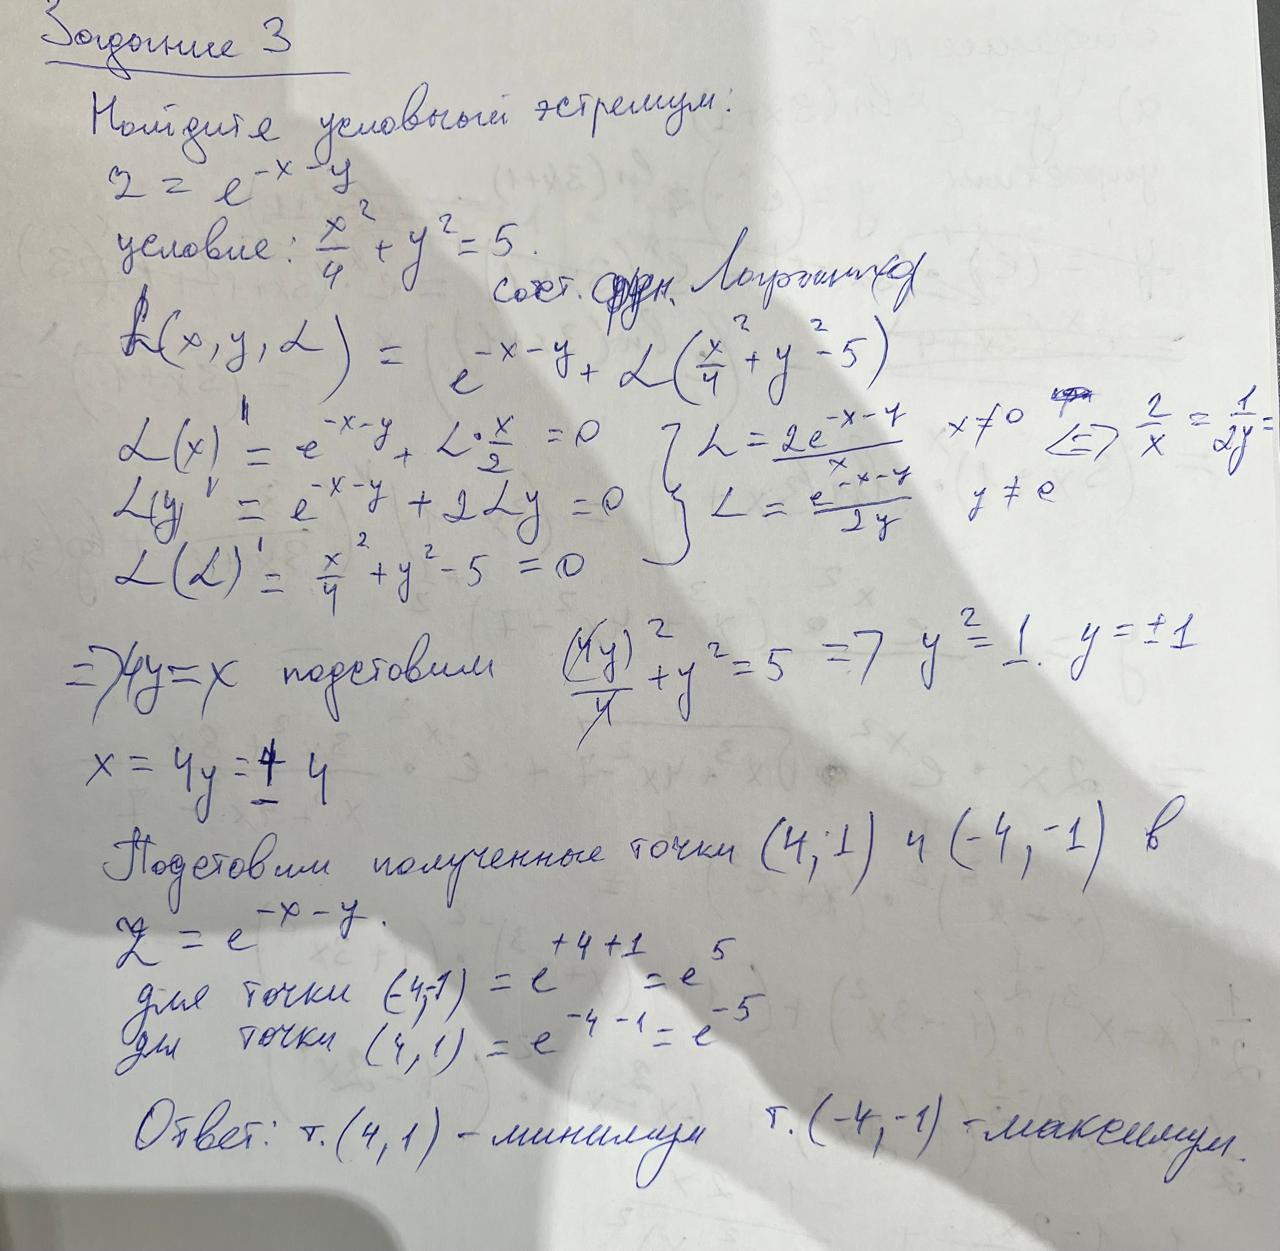 Задание 3
Найдите условный эстремум:
z = e^{-x-y}
условие: x²/4 + y² = 5.
сост. функ. Лагранжа
L(x, y, L) = e^{-x-y} + L(x²/4 + y² - 5)
L(x)' = e^{-x-y} + L·x/2 = 0 } L = 2e^{-x-y}/x x≠0 <=> 2/x = 1/2y =
L(y)' = e^{-x-y} + 2Ly = 0 } L = e^{-x-y}/2y y≠0
L(L)' = x²/4 + y² - 5 = 0
=> 4y = x подставим (4y)²/4 + y² = 5 => y² = 1. y = ±1
x = 4y = ± 4
Подставим полученные точки (4, 1) и (-4, -1) в
z = e^{-x-y}.
для точки (-4,-1) = e^{+4+1} = e^5
для точки (4, 1) = e^{-4-1} = e^{-5}
Ответ: т. (4, 1) - минимум т. (-4, -1) - максимум.